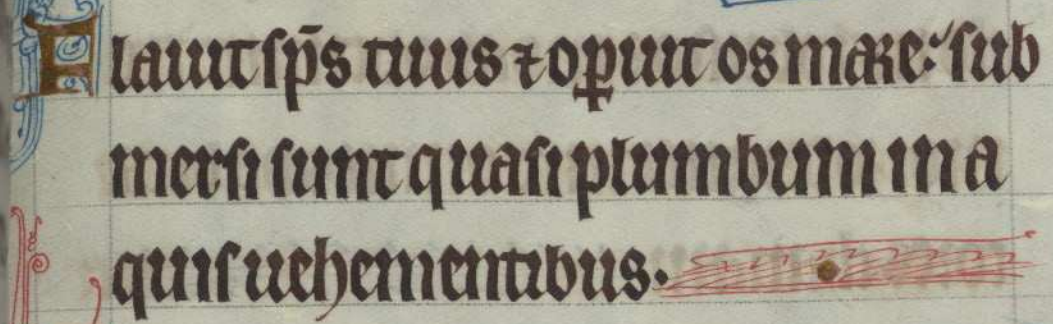 Flauit sp̄s tuus ⁊ oꝑuit os mare: sub
mersi sunt quasi plumbum in a
quis uehementibus.